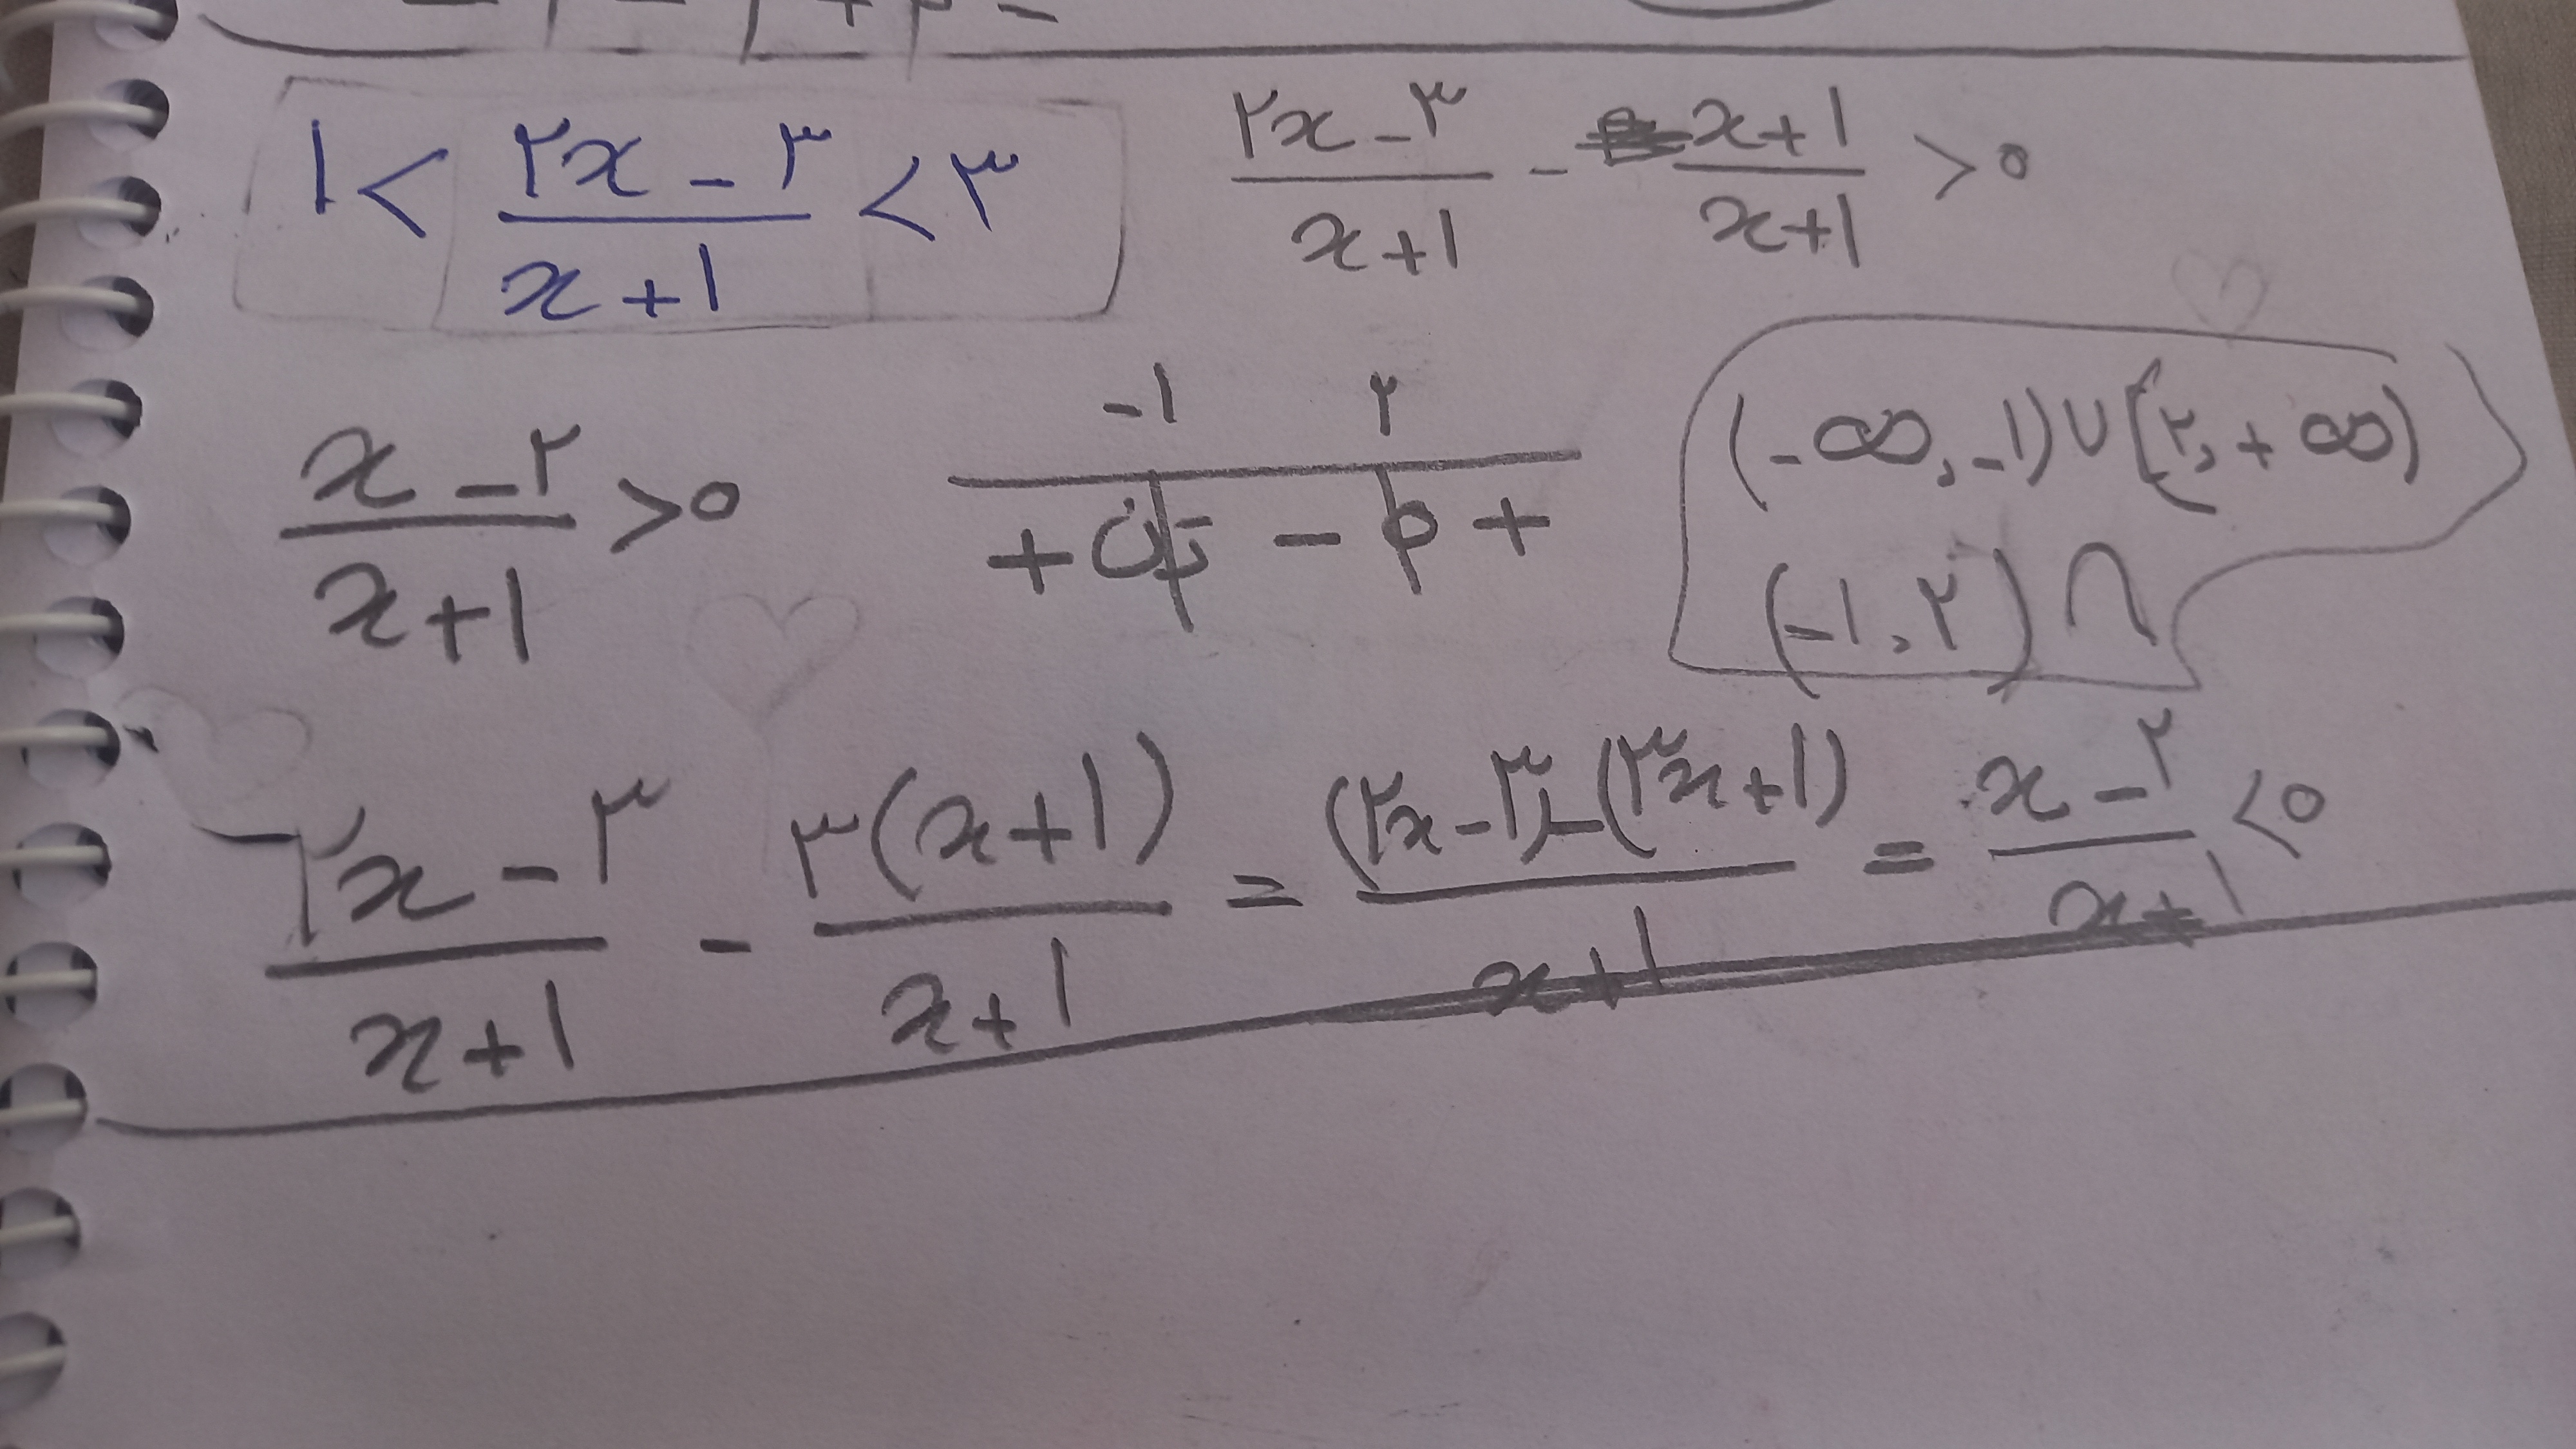 ۱ < (۲x − ۳)/(x + ۱) < ۳
(۲x − ۳)/(x + ۱) − (x + ۱)/(x + ۱) > ۰
(x − ۲)/(x + ۱) > ۰
−۱ ۲
+ تن − ۰ +
(−∞, −۱) ∪ (۲, +∞)
(−۱, ۲) ∩
(۲x − ۳)/(x + ۱) − ۳(x + ۱)/(x + ۱) = (۲x − ۳) − (۳x + ۱)/(x + ۱) = (x − ۲)/(x + ۱) < ۰